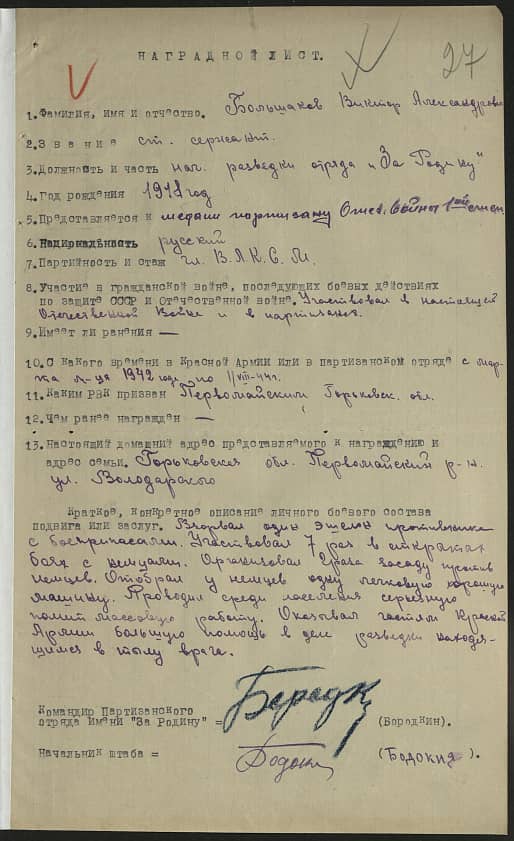 27
НАГРАДНОЙ ЛИСТ.
1. Фамилия, имя и отчество. Большаков Виктор Александрович
2. Звание ст. сержант.
3. Должность и часть нач. разведки отряда "За Родину"
4. Год рождения 1918 год
5. Представляется к медали партизану Отеч. Войны 1ой степен
6. Национальность русский
7. Партийность и стаж чл. ВЛКСМ.
8. Участие в гражданской войне, последующих боевых действиях
по защите СССР и Отечественной войне. Участвовал в настоящей
Отечественной Войне и в партизанах.
9. Имеет ли ранения —
10. С какого времени в Красной Армии или в партизанском отряде с мар-
та м-ца 1942 года по 1/VIII-44г.
11. Каким РВК призван Первомайским Горьковск. обл.
12. Чем ранее награжден —
13. Настоящий домашний адрес представляемого к награждению и
адрес семьи. Горьковская обл. Первомайский р-н.
ул. Володарского
Краткое, конкретное описание личного боевого состава
подвига или заслуг. Взорвал один эшелон противника
с боеприпасами. Участвовал 7 раз в открытых
боях с немцами. Организовал засаду против
немцев. Отобрал у немцев одну легковую хорошую
машину. Проводил среди населения серьезную
полит массовую работу. Оказывал частям Красной
Армии большую помощь в деле разведки находя-
щимся в тылу врага.
Командир Партизанского
отряда имени "За Родину" = (Бородкин).
Начальник штаба = (Бодокия).